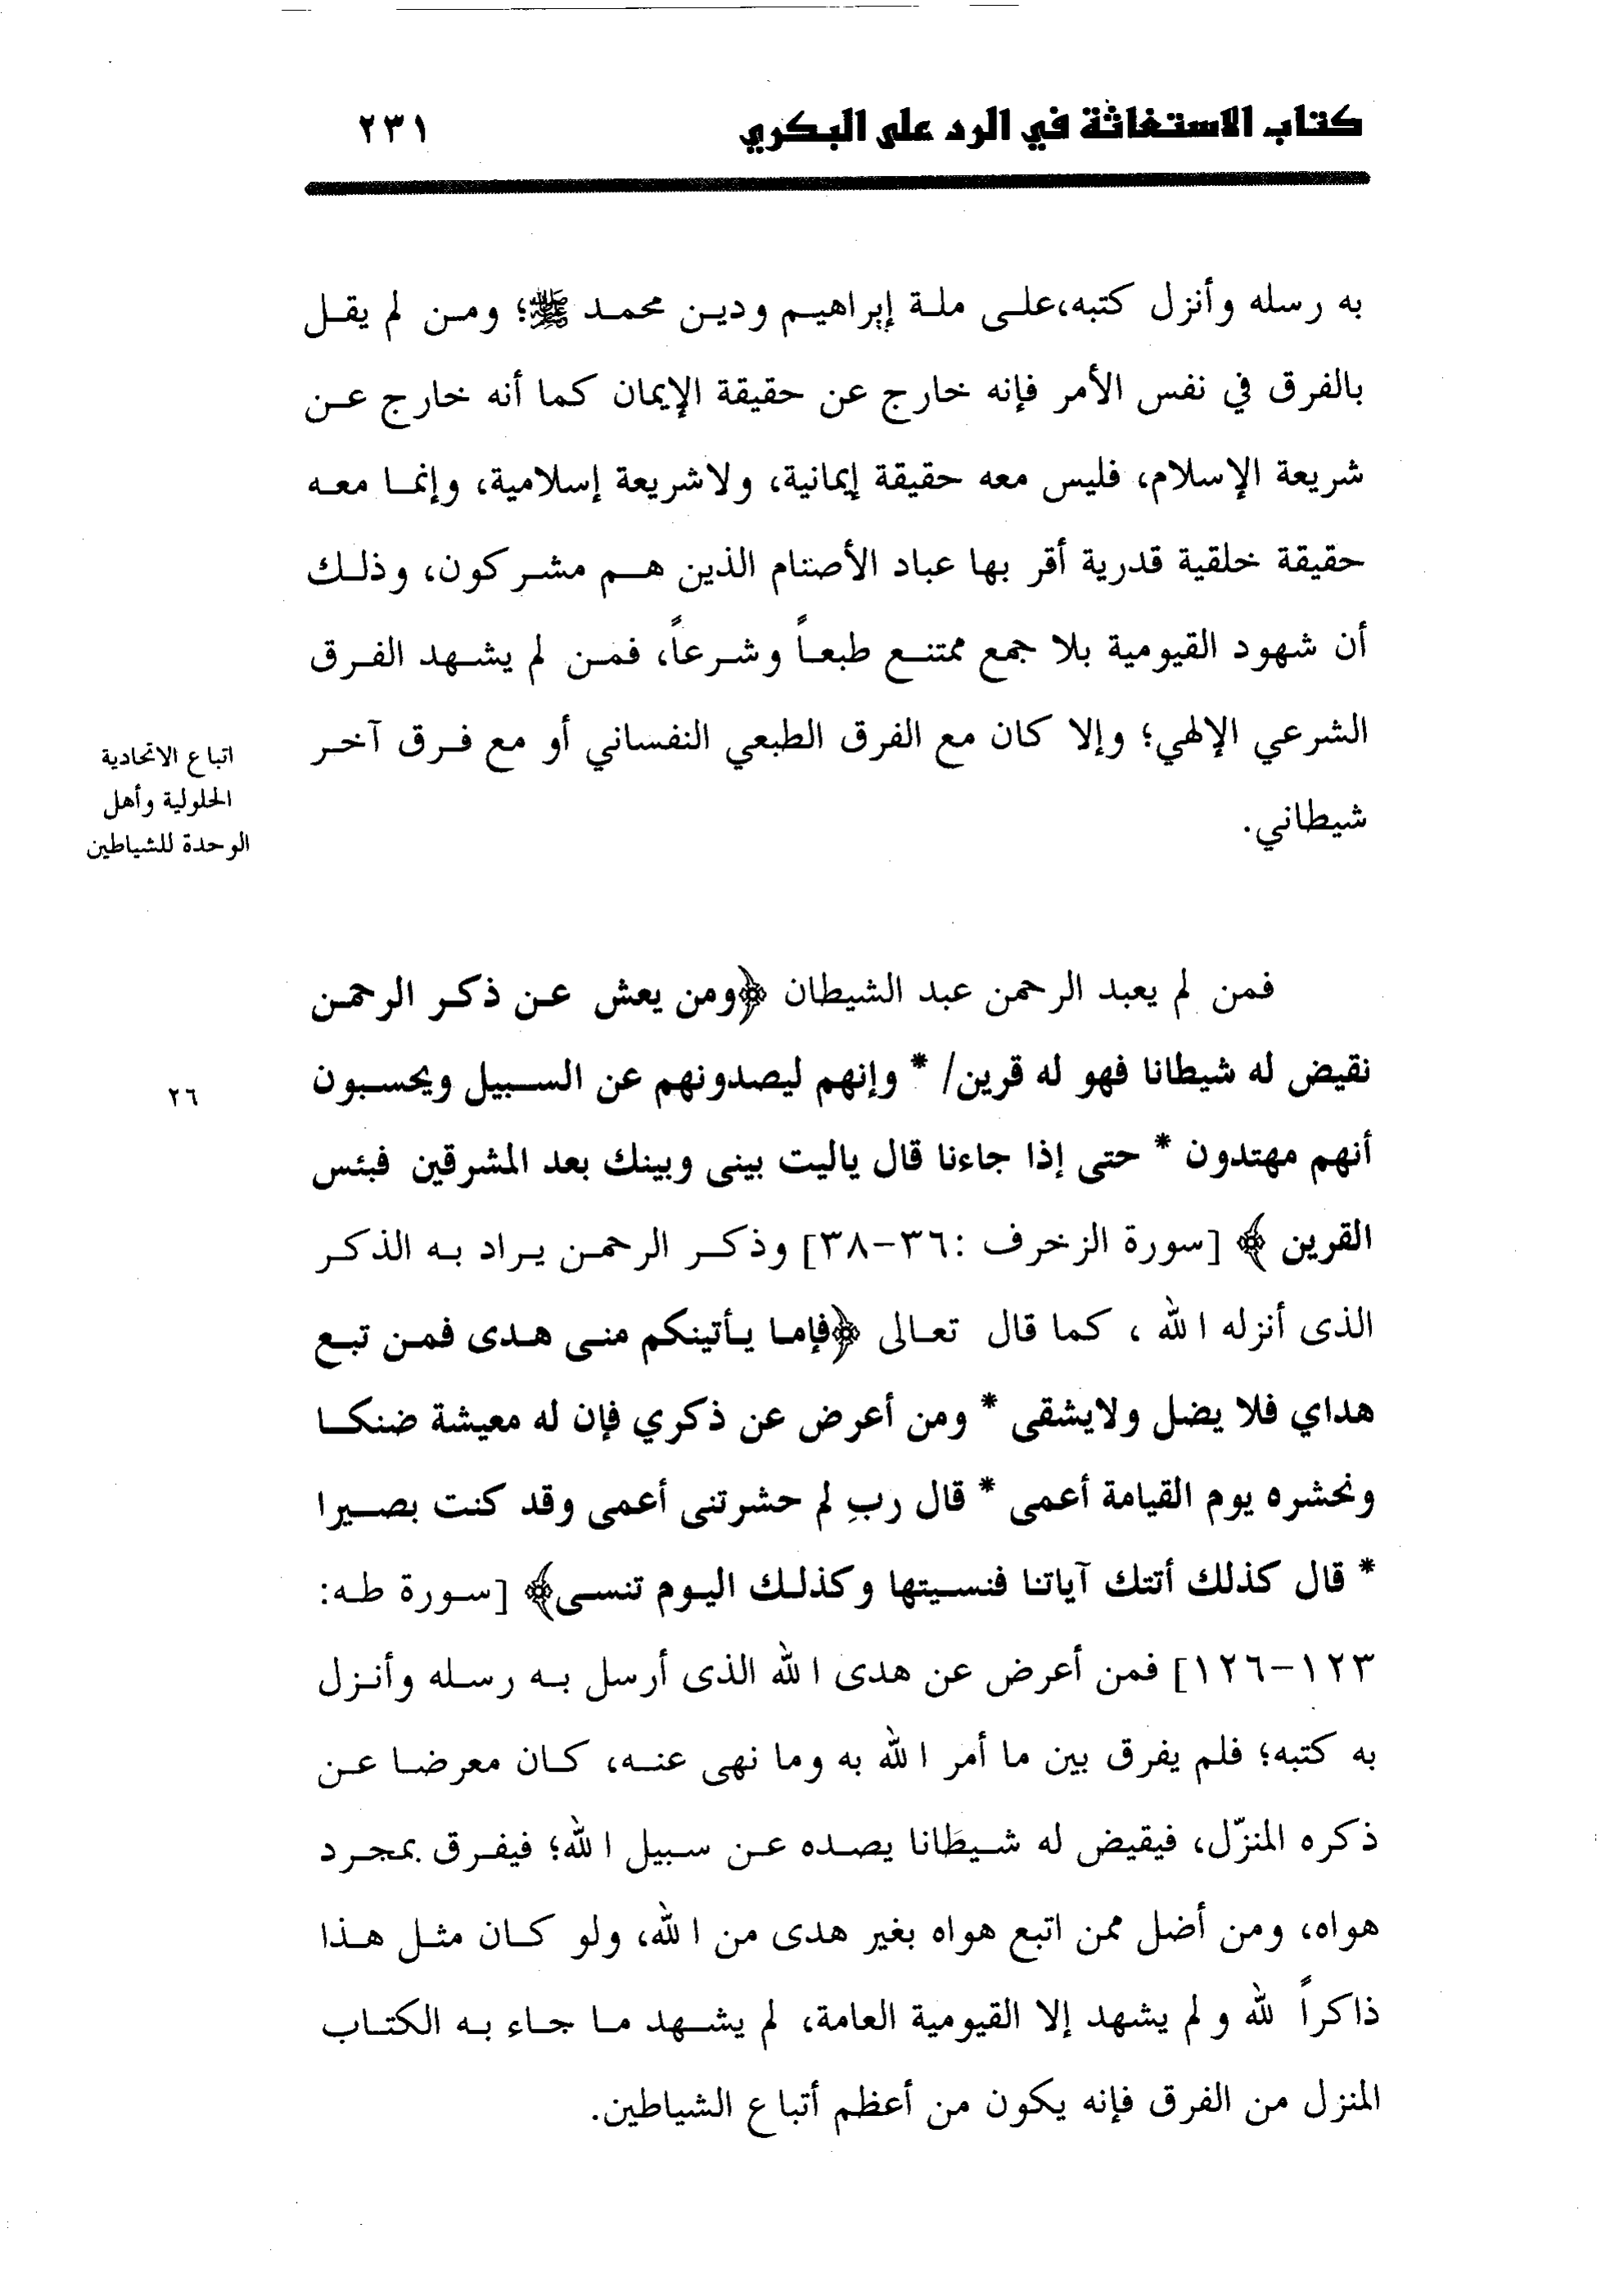 كتاب الاستغاثة في الرد على البكري ٢٣١
به رسله وأنزل كتبه،على ملة إبراهيم ودين محمد ﷺ؛ ومن لم يقل
بالفرق في نفس الأمر فإنه خارج عن حقيقة الإيمان كما أنه خارج عن
شريعة الإسلام، فليس معه حقيقة إيمانية، ولاشريعة إسلامية، وإنما معه
حقيقة خلقية قدرية أقر بها عباد الأصنام الذين هم مشركون، وذلك
أن شهود القيومية بلا جمع ممتنع طبعاً وشرعاً، فمن لم يشهد الفرق
الشرعي الإلهي؛ وإلا كان مع الفرق الطبعي النفساني أو مع فرق آخر
شيطاني.
اتباع الاتحادية
الحلولية وأهل
الوحدة للشياطين
فمن لم يعبد الرحمن عبد الشيطان ﴿ومن يعش عن ذكر الرحمن
نقيض له شيطانا فهو له قرين/ * وإنهم ليصدونهم عن السبيل ويحسبون
٢٦
أنهم مهتدون * حتى إذا جاءنا قال ياليت بينى وبينك بعد المشرقين فبئس
القرين ﴾ [سورة الزخرف :٣٦-٣٨] وذكر الرحمن يراد به الذكر
الذى أنزله الله ، كما قال تعالى ﴿فإما يأتينكم منى هدى فمن تبع
هداي فلا يضل ولايشقى * ومن أعرض عن ذكري فإن له معيشة ضنكا
ونحشره يوم القيامة أعمى * قال ربِ لم حشرتنى أعمى وقد كنت بصيرا
* قال كذلك أتتك آياتنا فنسيتها وكذلك اليوم تنسى﴾ [سورة طه:
١٢٣-١٢٦] فمن أعرض عن هدى الله الذى أرسل به رسله وأنزل
به كتبه؛ فلم يفرق بين ما أمر الله به وما نهى عنه، كان معرضا عن
ذكره المنزّل، فيقيض له شيطانا يصده عن سبيل الله؛ فيفرق بمجرد
هواه، ومن أضل ممن اتبع هواه بغير هدى من الله، ولو كان مثل هذا
ذاكراً لله ولم يشهد إلا القيومية العامة، لم يشهد ما جاء به الكتاب
المنزل من الفرق فإنه يكون من أعظم أتباع الشياطين.